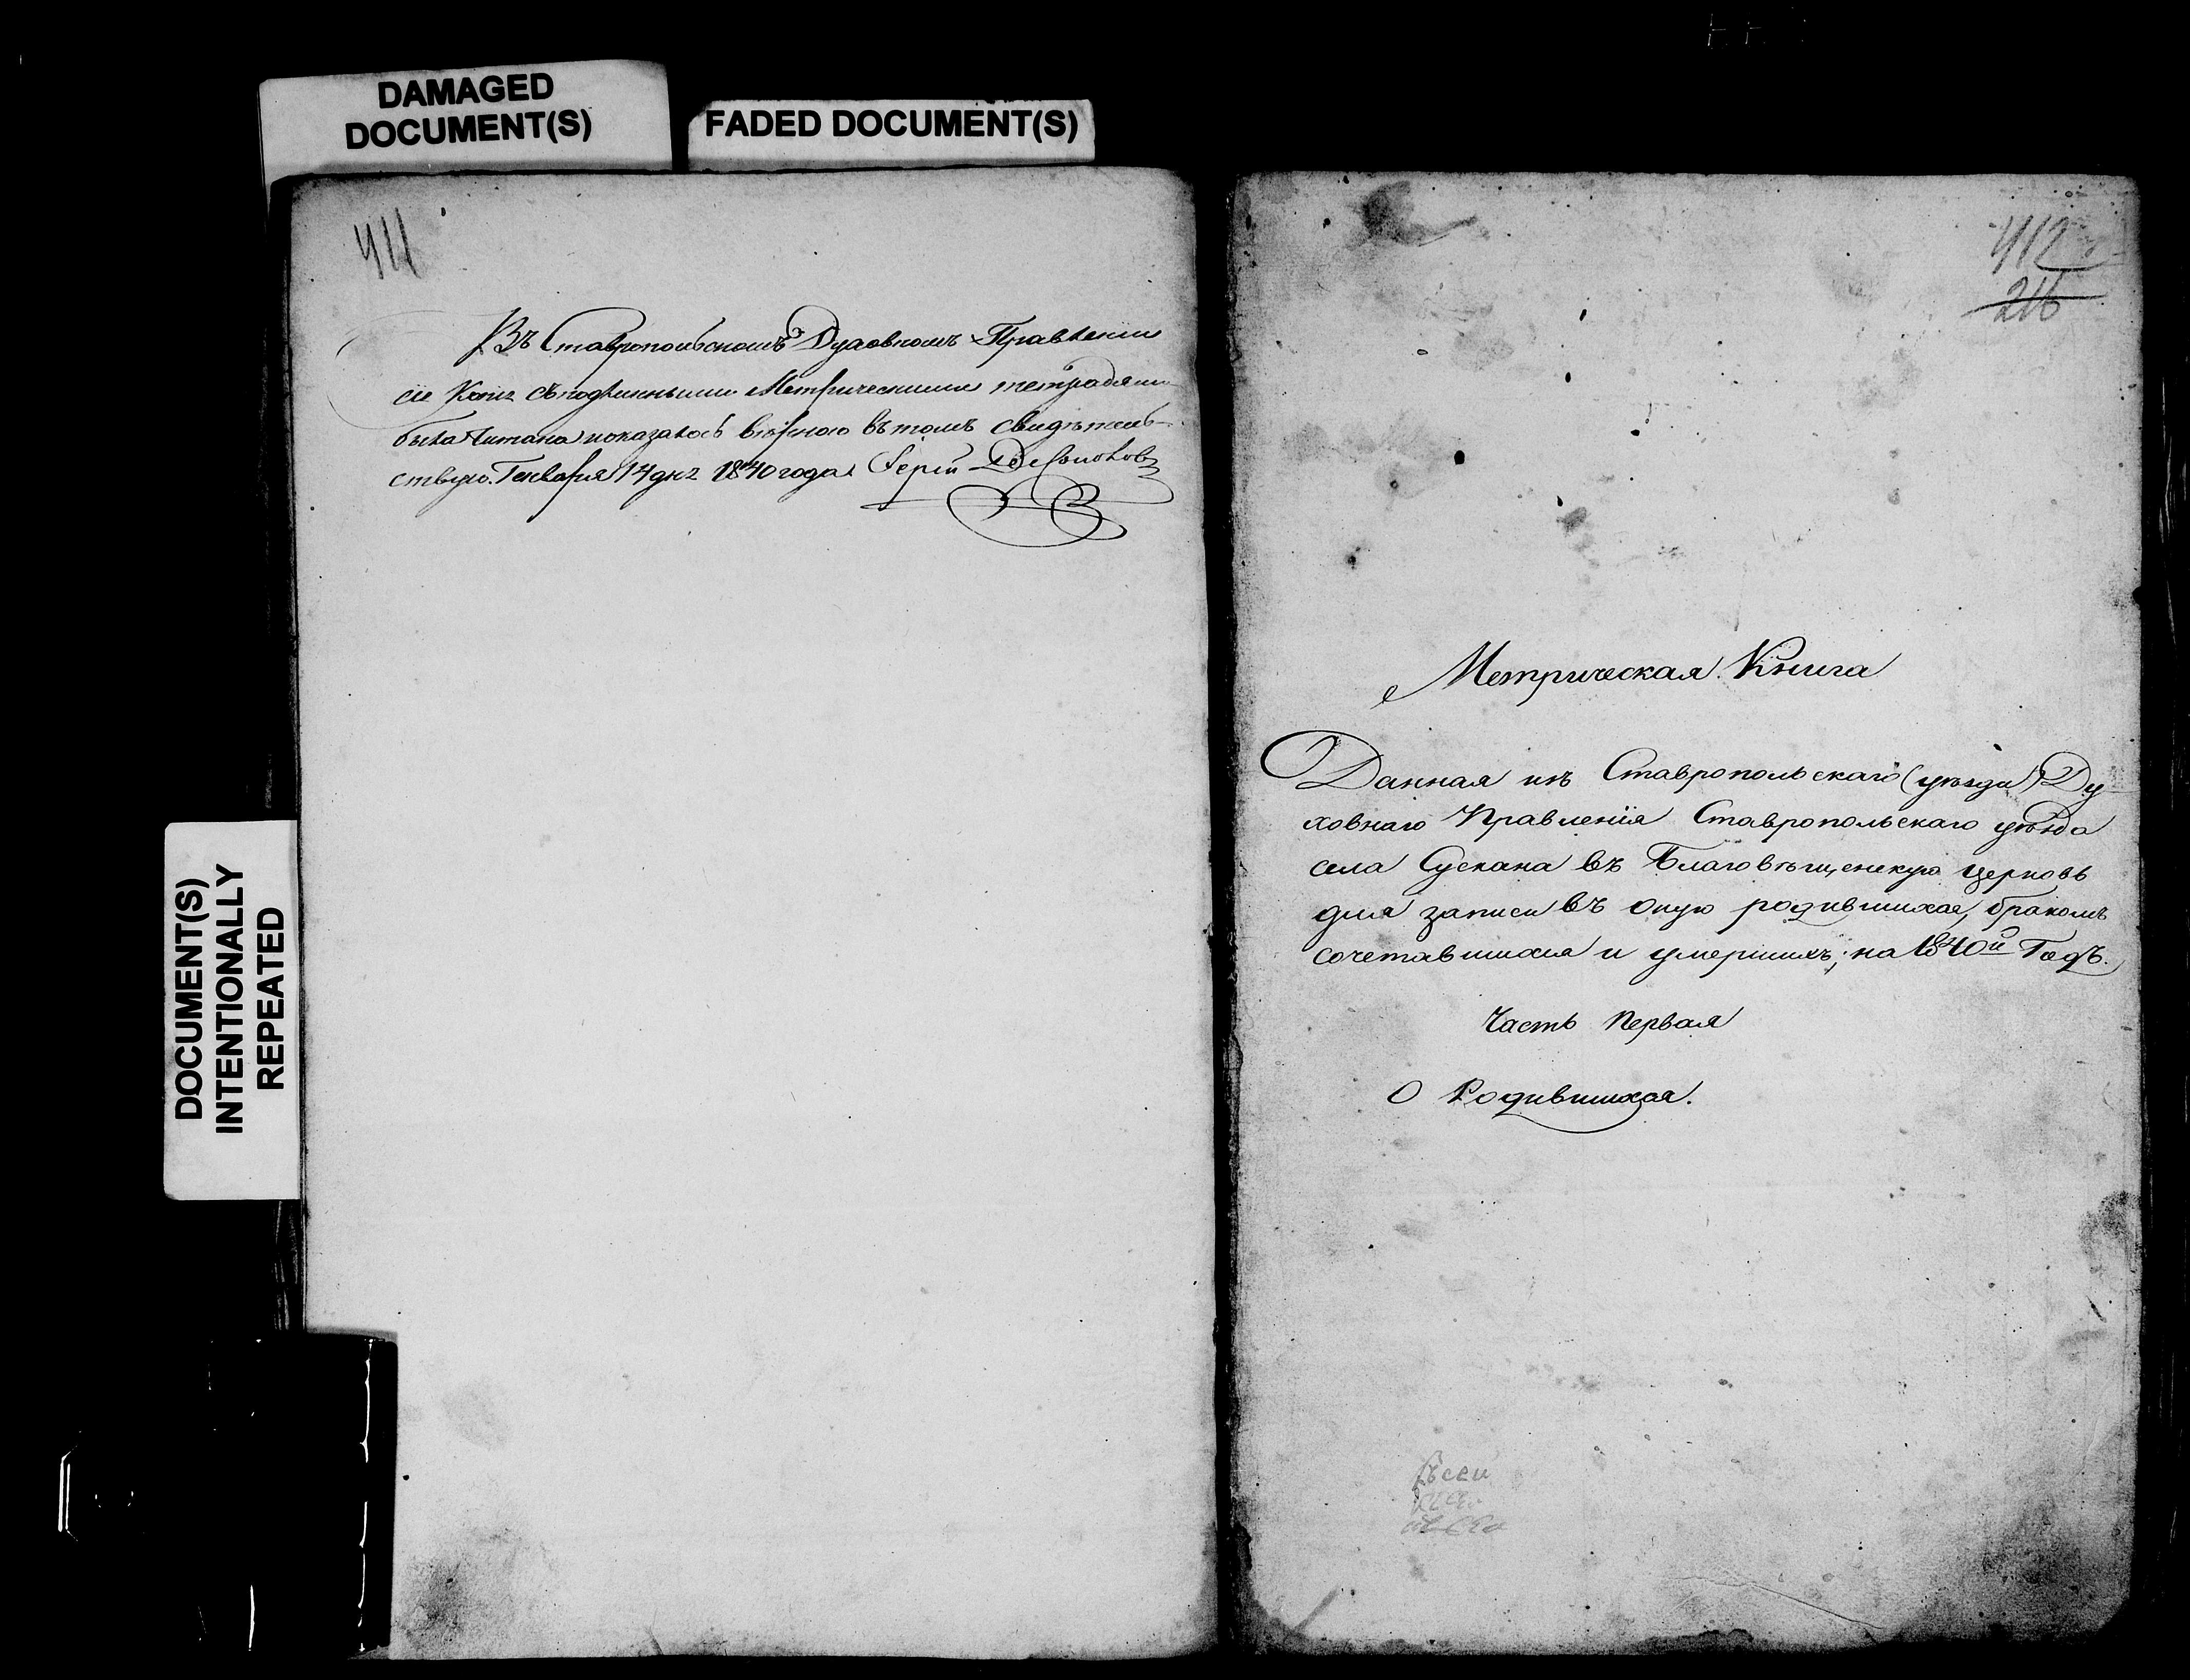 DAMAGED
DOCUMENT(S)
FADED DOCUMENT(S)
DOCUMENT(S)
INTENTIONALLY
REPEATED
411
Въ Ставропольскомъ Духовномъ Правленіи
сіе Копіе съ подлинными Метрическими тетрадями
была читана и оказалось вѣрною въ томъ свидѣтель-
ствую. Генваря 14 дня 1840 года Іерей
412
216
Метрическая Книга
Данная изъ Ставропольскаго (уѣзда) Ду-
ховнаго Правленія Ставропольскаго уѣзда
села Сускана въ Благовѣщенскую церковь
для записи въ оную родившихся, бракомъ
сочетавшихся и умершихъ; на 1840й Годъ.
Часть Первая
О Родившихся.